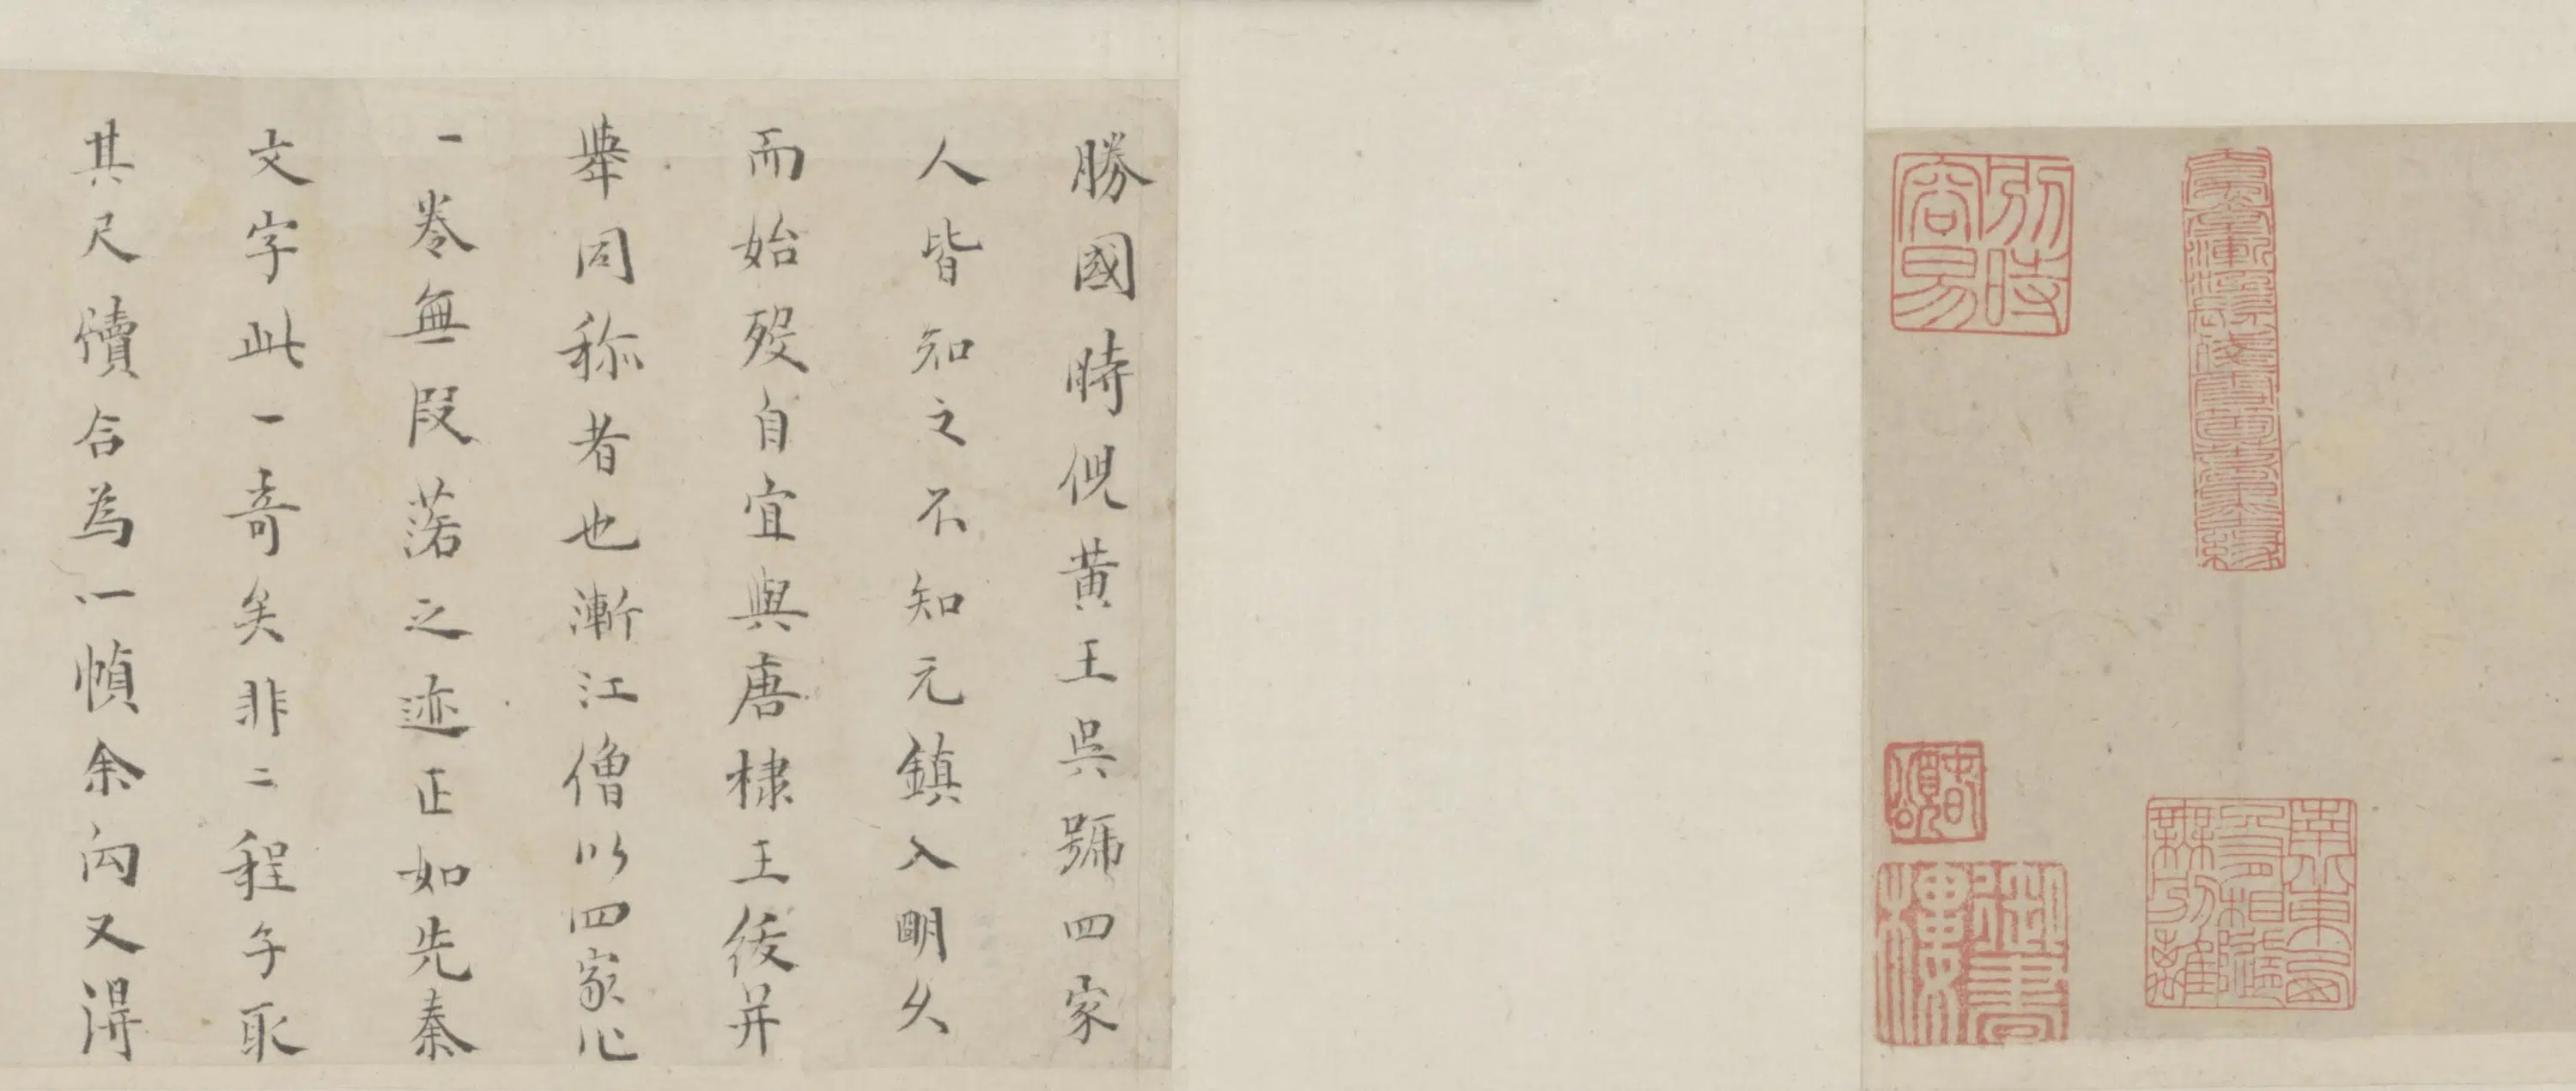 別時
容易
勝國時倪黄王吳號四家
人皆知之不知元鎮入明久
而始歿自宜與唐棣王紱并
舉同称者也漸江僧以四家化
一卷無段落之迹正如先秦
文字此一奇矣非二程子取
其尺牘合為一幀余向又得